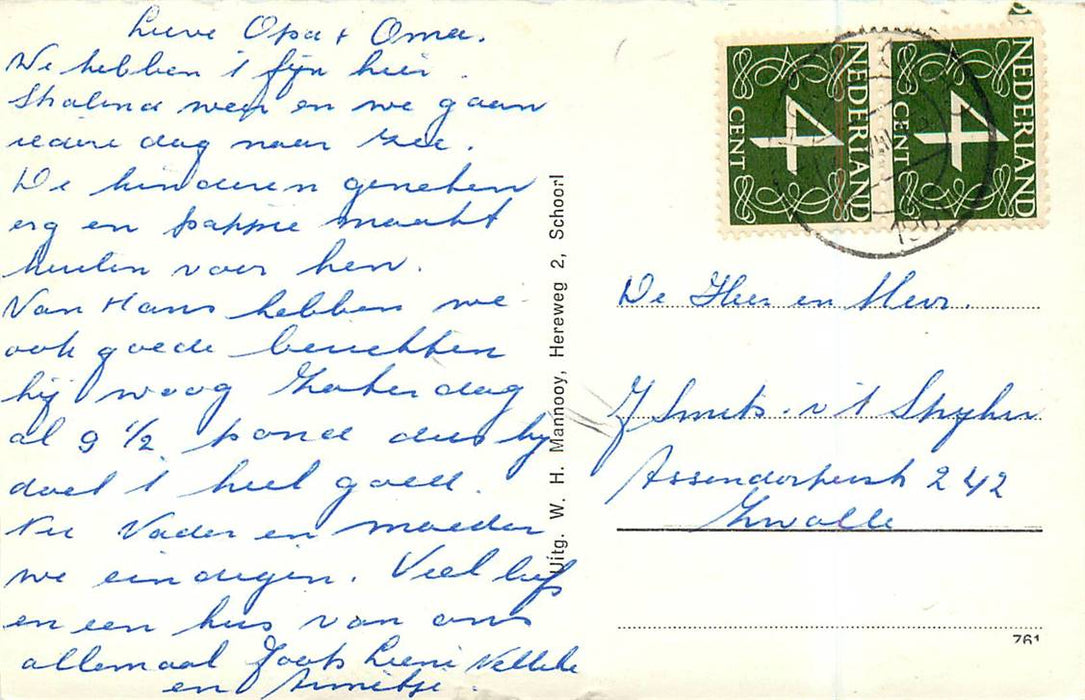 Lieve Opa + Oma.
We hebben 't fijn hier.
Stralend weer en we gaan
iedere dag naar zee.
De kinderen genieten
erg en pappie maakt
kuilen voor hen.
Van Hans hebben we
ook goede berichten
hij woog Zaterdag
al 9 1/2 pond dus hij
doet 't heel goed.
Nu Vader en moeder
we eindigen. Veel liefs
en een kus van ons
allemaal Joop Lieni Nelleke
en Annetje.
Uitg. W. H. Mannooy, Hereweg 2, Schoorl
NEDERLAND
4
CENT
NEDERLAND
4
CENT
De Heer en Mevr.
J Smits. v 't Spijker
Assendorperstr 242
Zwolle
761